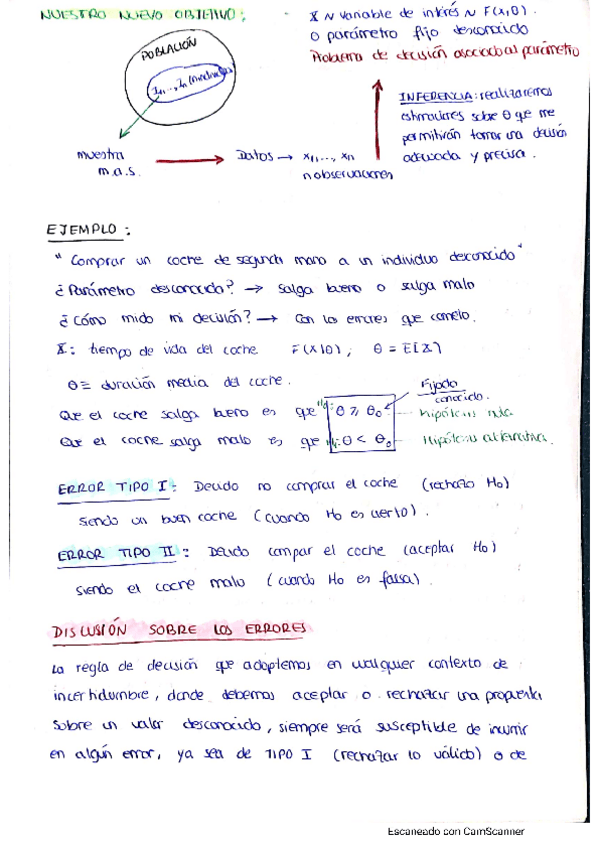 NUESTRO NUEVO OBJETIVO:
X ~ variable de interés ~ F(x,θ).
θ parámetro fijo desconocido
Problema de decisión asociado al parámetro
POBLACIÓN
INFERENCIA: realizaremos
estimaciones sobre θ que me
permitirán tomar una decisión
adecuada y precisa.
muestra
m.a.s.
Datos → x₁,..., xₙ
n observaciones
EJEMPLO:
"Comprar un coche de segunda mano a un individuo desconocido"
¿Parámetro desconocido? → salga bueno o salga malo
¿Cómo mido mi decisión? → Con los errores que cometo.
X: tiempo de vida del coche F(X|θ); θ = E[X]
θ ≡ duración media del coche.
Fijado
conocido.
Que el coche salga bueno es que H₀: θ ≥ θ₀ Hipótesis nula
Que el coche salga malo es que H₁: θ < θ₀ Hipótesis alternativa.
ERROR TIPO I: Decido no comprar el coche (rechazo H₀)
siendo un buen coche (cuando H₀ es cierto).
ERROR TIPO II: Decido comprar el coche (aceptar H₀)
siendo el coche malo (cuando H₀ es falsa).
DISCUSIÓN SOBRE LOS ERRORES
La regla de decisión que adoptemos en cualquier contexto de
incertidumbre, donde debemos aceptar o rechazar una propuesta
sobre un valor desconocido, siempre será susceptible de incurrir
en algún error, ya sea de TIPO I (rechazar lo válido) o de
Escaneado con CamScanner